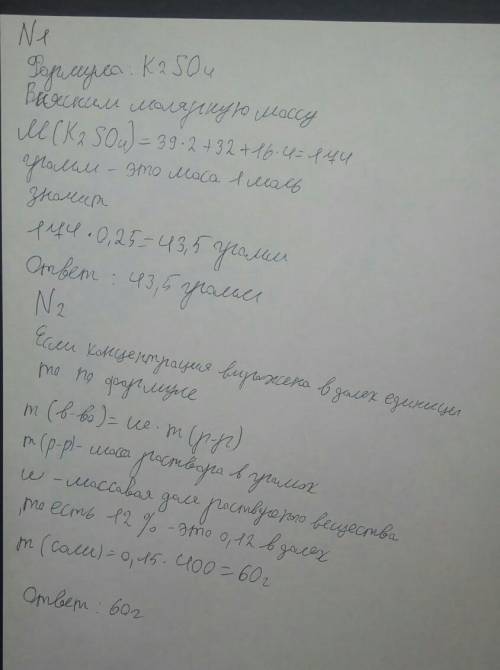 N1
Формула: K2SO4
Выясним молярную массу
M(K2SO4)=39·2+32+16·4=174
грамм - это маса 1 моль
значит
174·0,25=43,5 грамм
Ответ: 43,5 грамм
N2
Если концентрация выражена в долех единицы
то по формуле
m(в-ва)=w·m(р-ра)
m(р-р)-маса раствора в грамох
w - массовая доля вещества
, то есть 12% - это 0,12 в долех
m(соли)=0,15·400=60г
Ответ: 60г